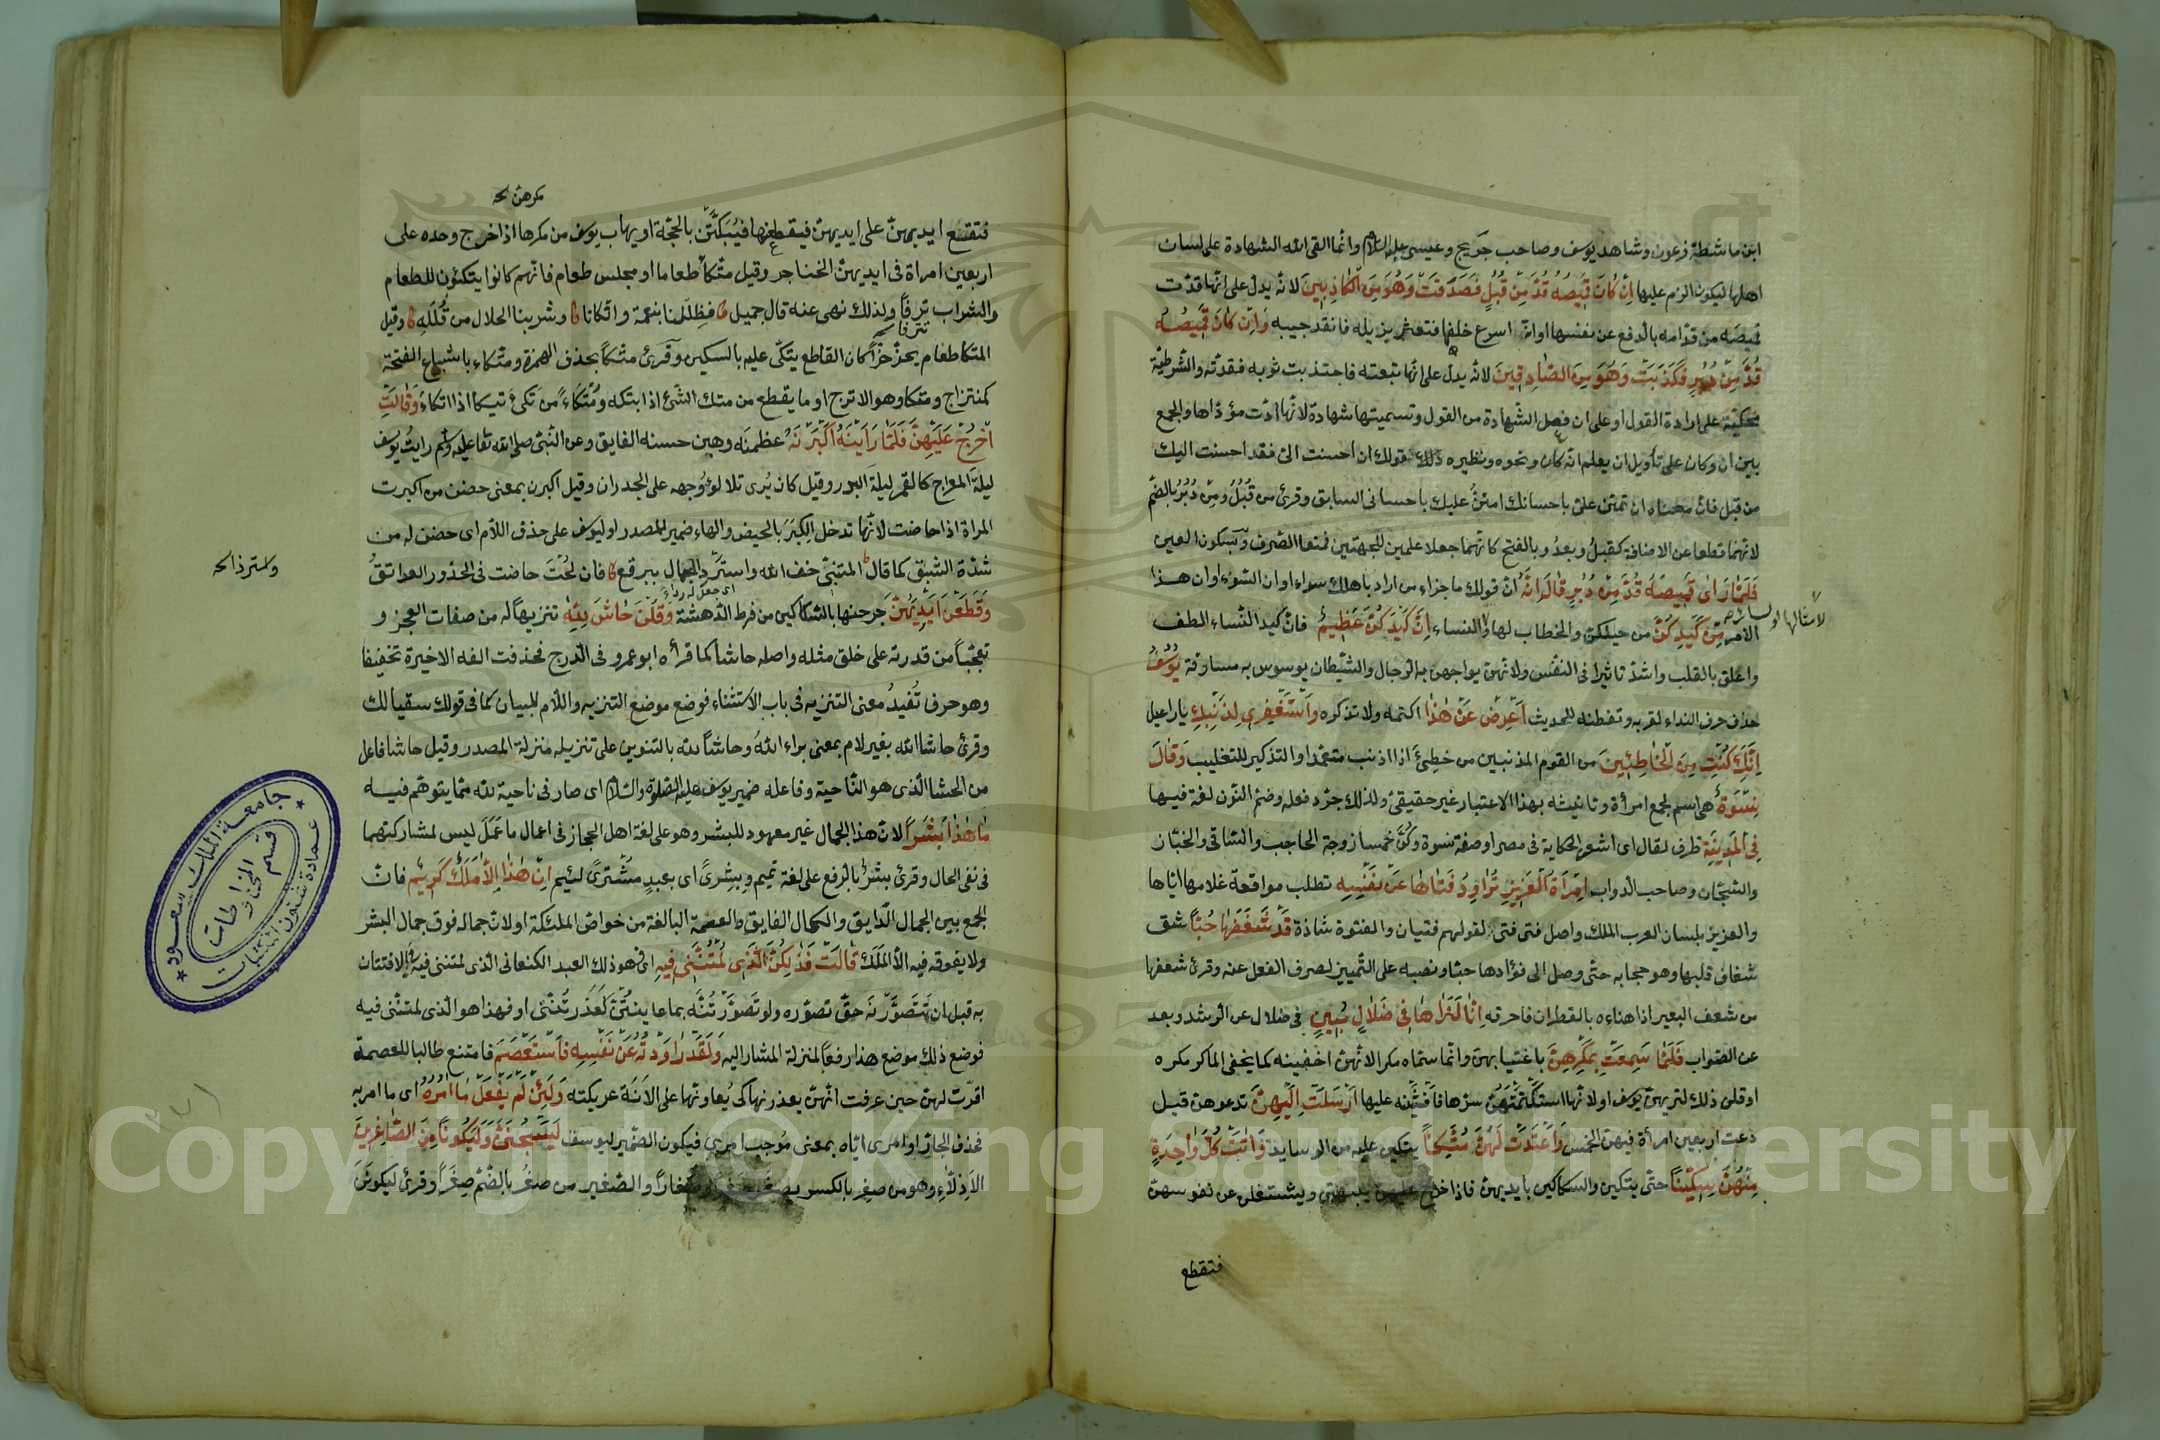 ابن ماشطة فرعون وشاهد يوسف وصاحب جريج وعيسى عليه السلام وانما القى الله الشهادة على لسان
اهلها ليكون الزم عليها اِنْ كَانَ قَمِيصُهُ قُدَّ مِنْ قُبُلٍ فَصَدَقَتْ وَهُوَ مِنَ الْكَاذِبِينَ لانه يدل على انها قدت
قميصه من قدامه بالدفع عن نفسها او انه اسرع خلفها فتعثر بذيله فانقد جيبه وَاِنْ كَانَ قَمِيصُهُ
قُدَّ مِنْ دُبُرٍ فَكَذَبَتْ وَهُوَ مِنَ الصَّادِقِينَ لانه يدل على انها تبعته فاجتذبت ثوبه فقدته والشرطية
محكية على ارادة القول او على ان فعل الشهادة من القول وتسميتها شهادة لانها ادت مؤداها والجمع
بين ان وكان على تأويل ان يعلم انه كان ونحوه ونظيره ذلك قولك ان احسنت الى فقد احسنت اليك
من قبل فان معناه ان تمنن على باحسانك امنن عليك باحسانى السابق وقرئ من قُبُلُ ومن دُبُرُ بالضم
لانهما قطعا عن الاضافة كقبلُ وبعدُ وبالفتح كانهما جعلا علمين للجهتين فمنعا الصرف وبسكون العين
فَلَمَّا رَاى قَمِيصَهُ قُدَّ مِنْ دُبُرٍ قَالَ اِنَّهُ ان قولك ما جزاء من اراد باهلك سوءا او ان السوء او ان هذا
الامر مِنْ كَيْدِكُنَّ من حيلتكن والخطاب لها ولا النساء اِنَّ كَيْدَكُنَّ عَظِيمٌ فان كيد النساء الطف
واعلق بالقلب واشد تاثيرا فى النفس ولانهن يواجهن به الرجال والشيطان يوسوس به مسارقة يُوسُفُ
حذف حرف النداء لقربه وتفطنه للحديث اَعْرِضْ عَنْ هٰذَا اكتمه ولا تذكره وَاسْتَغْفِرِى لِذَنْبِكِ يا راعيل
اِنَّكِ كُنْتِ مِنَ الْخَاطِئِينَ من القوم المذنبين من خطئ اذا اذنب متعمدا والتذكير للتغليب وَقَالَ
نِسْوَةٌ هى اسم لجمع امرأة وتانيثه بهذا الاعتبار غير حقيقى ولذلك جرد فعله وضم النون لغة فيها
فِى الْمَدِينَةِ ظرف لقال اى اشعن الحكاية فى مصر او صفة نسوة وكنّ خمسا زوجة الحاجب والساقى والخباز
والسجان وصاحب الدواب اِمْرَاَةُ الْعَزِيزِ تُرَاوِدُ فَتَاهَا عَنْ نَفْسِهِ تطلب مواقعة غلامها اياها
والعزيز بلسان العرب الملك واصل فتى فتى لقولهم فتيان والفتوة شاذة قَدْ شَغَفَهَا حُبًّا شق
شغاف قلبها وهو حجابه حتى وصل الى فؤادها حبا ونصبه على التمييز لصرف الفعل عنه وقرئ شعفها
من شعف البعير اذا هناءه بالقطران فاحرقه اِنَّا لَنَرَاهَا فِى ضَلَالٍ مُبِينٍ فى ضلال عن الرشد وبعد
عن الصواب فَلَمَّا سَمِعَتْ بِمَكْرِهِنَّ باغتيابهن وانما سماه مكرا لانهن اخفينه كما يخفى الماكر مكره
او قلن ذلك لتريهن يوسف او لانها استكتمتهن سرها فافشينه عليها اَرْسَلَتْ اِلَيْهِنَّ تدعوهن قيل
دعت اربعين امرأة فيهن الخمس وَاَعْتَدَتْ لَهُنَّ مُتَّكَئًا يتكين عليه من الوسايد وَاٰتَتْ كُلَّ وَاحِدَةٍ
مِنْهُنَّ سِكِّينًا حتى يتكين والسكاكين بايديهن فاذا خرج عليهن يبهتن ويشتغلن عن نفوسهن
فتقطع
مكرهن صح
فتقع ايديهن على ايديهن فيقطعنها فيبكتن بالحجة او يهاب يوسف من مكرها اذا خرج وحده على
اربعين امرأة فى ايديهن الخناجر وقيل متكأ طعاما او مجلس طعام فانهم كانوا يتكئون للطعام
والشراب ترفا ولذلك نهى عنه قال جميل فظللنا بنعمة واتكانا وشربنا الحلال من قُلَلِه وقيل
المتكا طعام يحز حزا كان القاطع يتكى عليه بالسكين وقرئ متكا بحذف الهمزة ومتكاء باشباع الفتحة
كمنتزاح ومتكا وهو الاترج او ما يقطع من متك الشئ اذا بتكه ومُتْكَاءً من تكئ تيكا اذا اتكاء وَقَالَتِ
اخْرُجْ عَلَيْهِنَّ فَلَمَّا رَاَيْنَهُ اَكْبَرْنَهُ عظمنه وهبن حسنه الفايق وعن النبى صلى الله تعالى عليه وسلم رايت يوسف
ليلة المعراج كالقمر ليلة البدر وقيل كان يُرى تلألؤ وجهه على الجدران وقيل اكبرن بمعنى حضن من اكبرت
المرأة اذا حاضت لانها تدخل الكبر بالحيض والهاء ضمير للمصدر او ليوسف على حذف اللام اى حضن له من
شدة الشبق كما قال المتنبى خف الله واستر ذا الجمال ببرقع فان لُحْتَ حاضت فى الخدور العواتقُ
ولستر ذا صح
وَقَطَّعْنَ اَيْدِيَهُنَّ جرحنها بالسكاكين من فرط الدهشة وَقُلْنَ حَاشَ لِلّٰهِ تنزيها له من صفات العجز و
تعجبا من قدرته على خلق مثله واصله حاشا كما قرأه ابو عمرو فى الدرج فحذفت الفه الاخيرة تخفيفا
وهو حرف تُفيدُ معنى التنزيه فى باب الاستثناء فوضع موضع التنزيه واللام للبيان كما فى قولك سقيا لك
وقرئ حاشا الله بغير لام بمعنى براءة اللهِ وحاشًا لله بالتنوين على تنزيله منزلة المصدر وقيل حاشا فاعل
من الحشا الذى هو الناحية وفاعله ضمير يوسف عليه الصلوة والسلام اى صار فى ناحية لله مما يتوهم فيه
مَا هٰذَا بَشَرًا لان هذا الجمال غير معهود للبشر وهو على لغة اهل الحجاز فى اعمال ما عمل ليس لمشاركتهما
فى نفى الحال وقرئ بشرٌ بالرفع على لغة تميم وبِشِرًى اى بعبدٍ مُشترًى لئيم اِنْ هٰذَا اِلَّا مَلَكٌ كَرِيمٌ فان
الجمع بين الجمال الرايق والكمال الفايق والعصمة البالغة من خواص الملئكة او لان جماله فوق جمال البشر
ولا يفوقه فيه الا الملك قَالَتْ فَذٰلِكُنَّ الَّذِى لُمْتُنَّنِى فِيهِ اى فهو ذلك العبد الكنعانى الذى لمتننى فيه فى الافتتان
به قبل ان تتصوّرنه حق تصوره ولو تصوّرتُنّه بما عاينتُنّ لعذرتُنّنى او فهذا هو الذى لمتننى فيه
فوضع ذلك موضع هذا رفعا لمنزلة المشار اليه وَلَقَدْ رَاوَدْتُهُ عَنْ نَفْسِهِ فَاسْتَعْصَمَ فامتنع طالبا للعصمة
اقرت لهن حين عرفت انهن يعذرنها كى يُعاونها على الانة عريكته وَلَئِنْ لَمْ يَفْعَلْ مَا اٰمُرُهُ اى ما امر به
فحذف الجار او امرى اياه بمعنى موجب امرى فيكون الضمير ليوسف لَيُسْجَنَنَّ وَلَيَكُونًا مِنَ الصَّاغِرِينَ
الاذلاء وهو من صغِر بالكسر يصغر صغرا وصغارا والصغير من صغُر بالضم صِغَرًا وقرئ ليكونَنَّ
جامعة الملك سعود
عمادة شئون المكتبات
قسم المخطوطات
Copyright © King Saud University